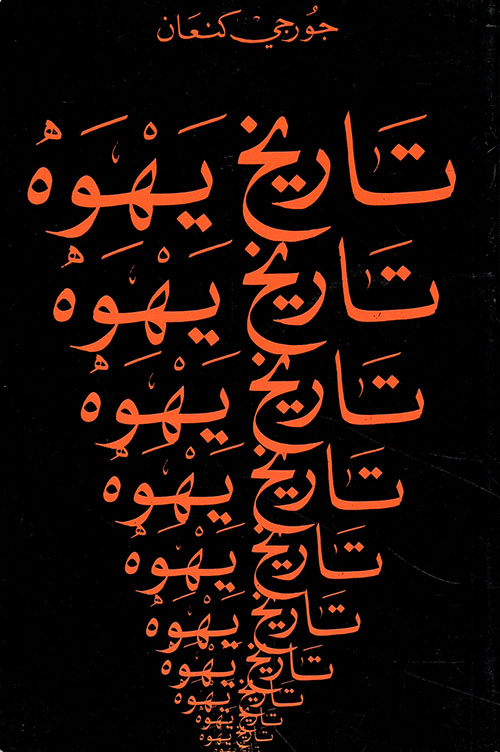 جُورجي كنعَان
تَاريخ يَهْوَه
تَاريخ يَهْوَه
تَاريخ يَهْوَه
تَاريخ يَهْوَه
تَاريخ يَهْوَه
تَاريخ يَهْوَه
تَاريخ يَهْوَه
تَاريخ يَهْوَه
تَاريخ يَهْوَه
تَاريخ يَهْوَه